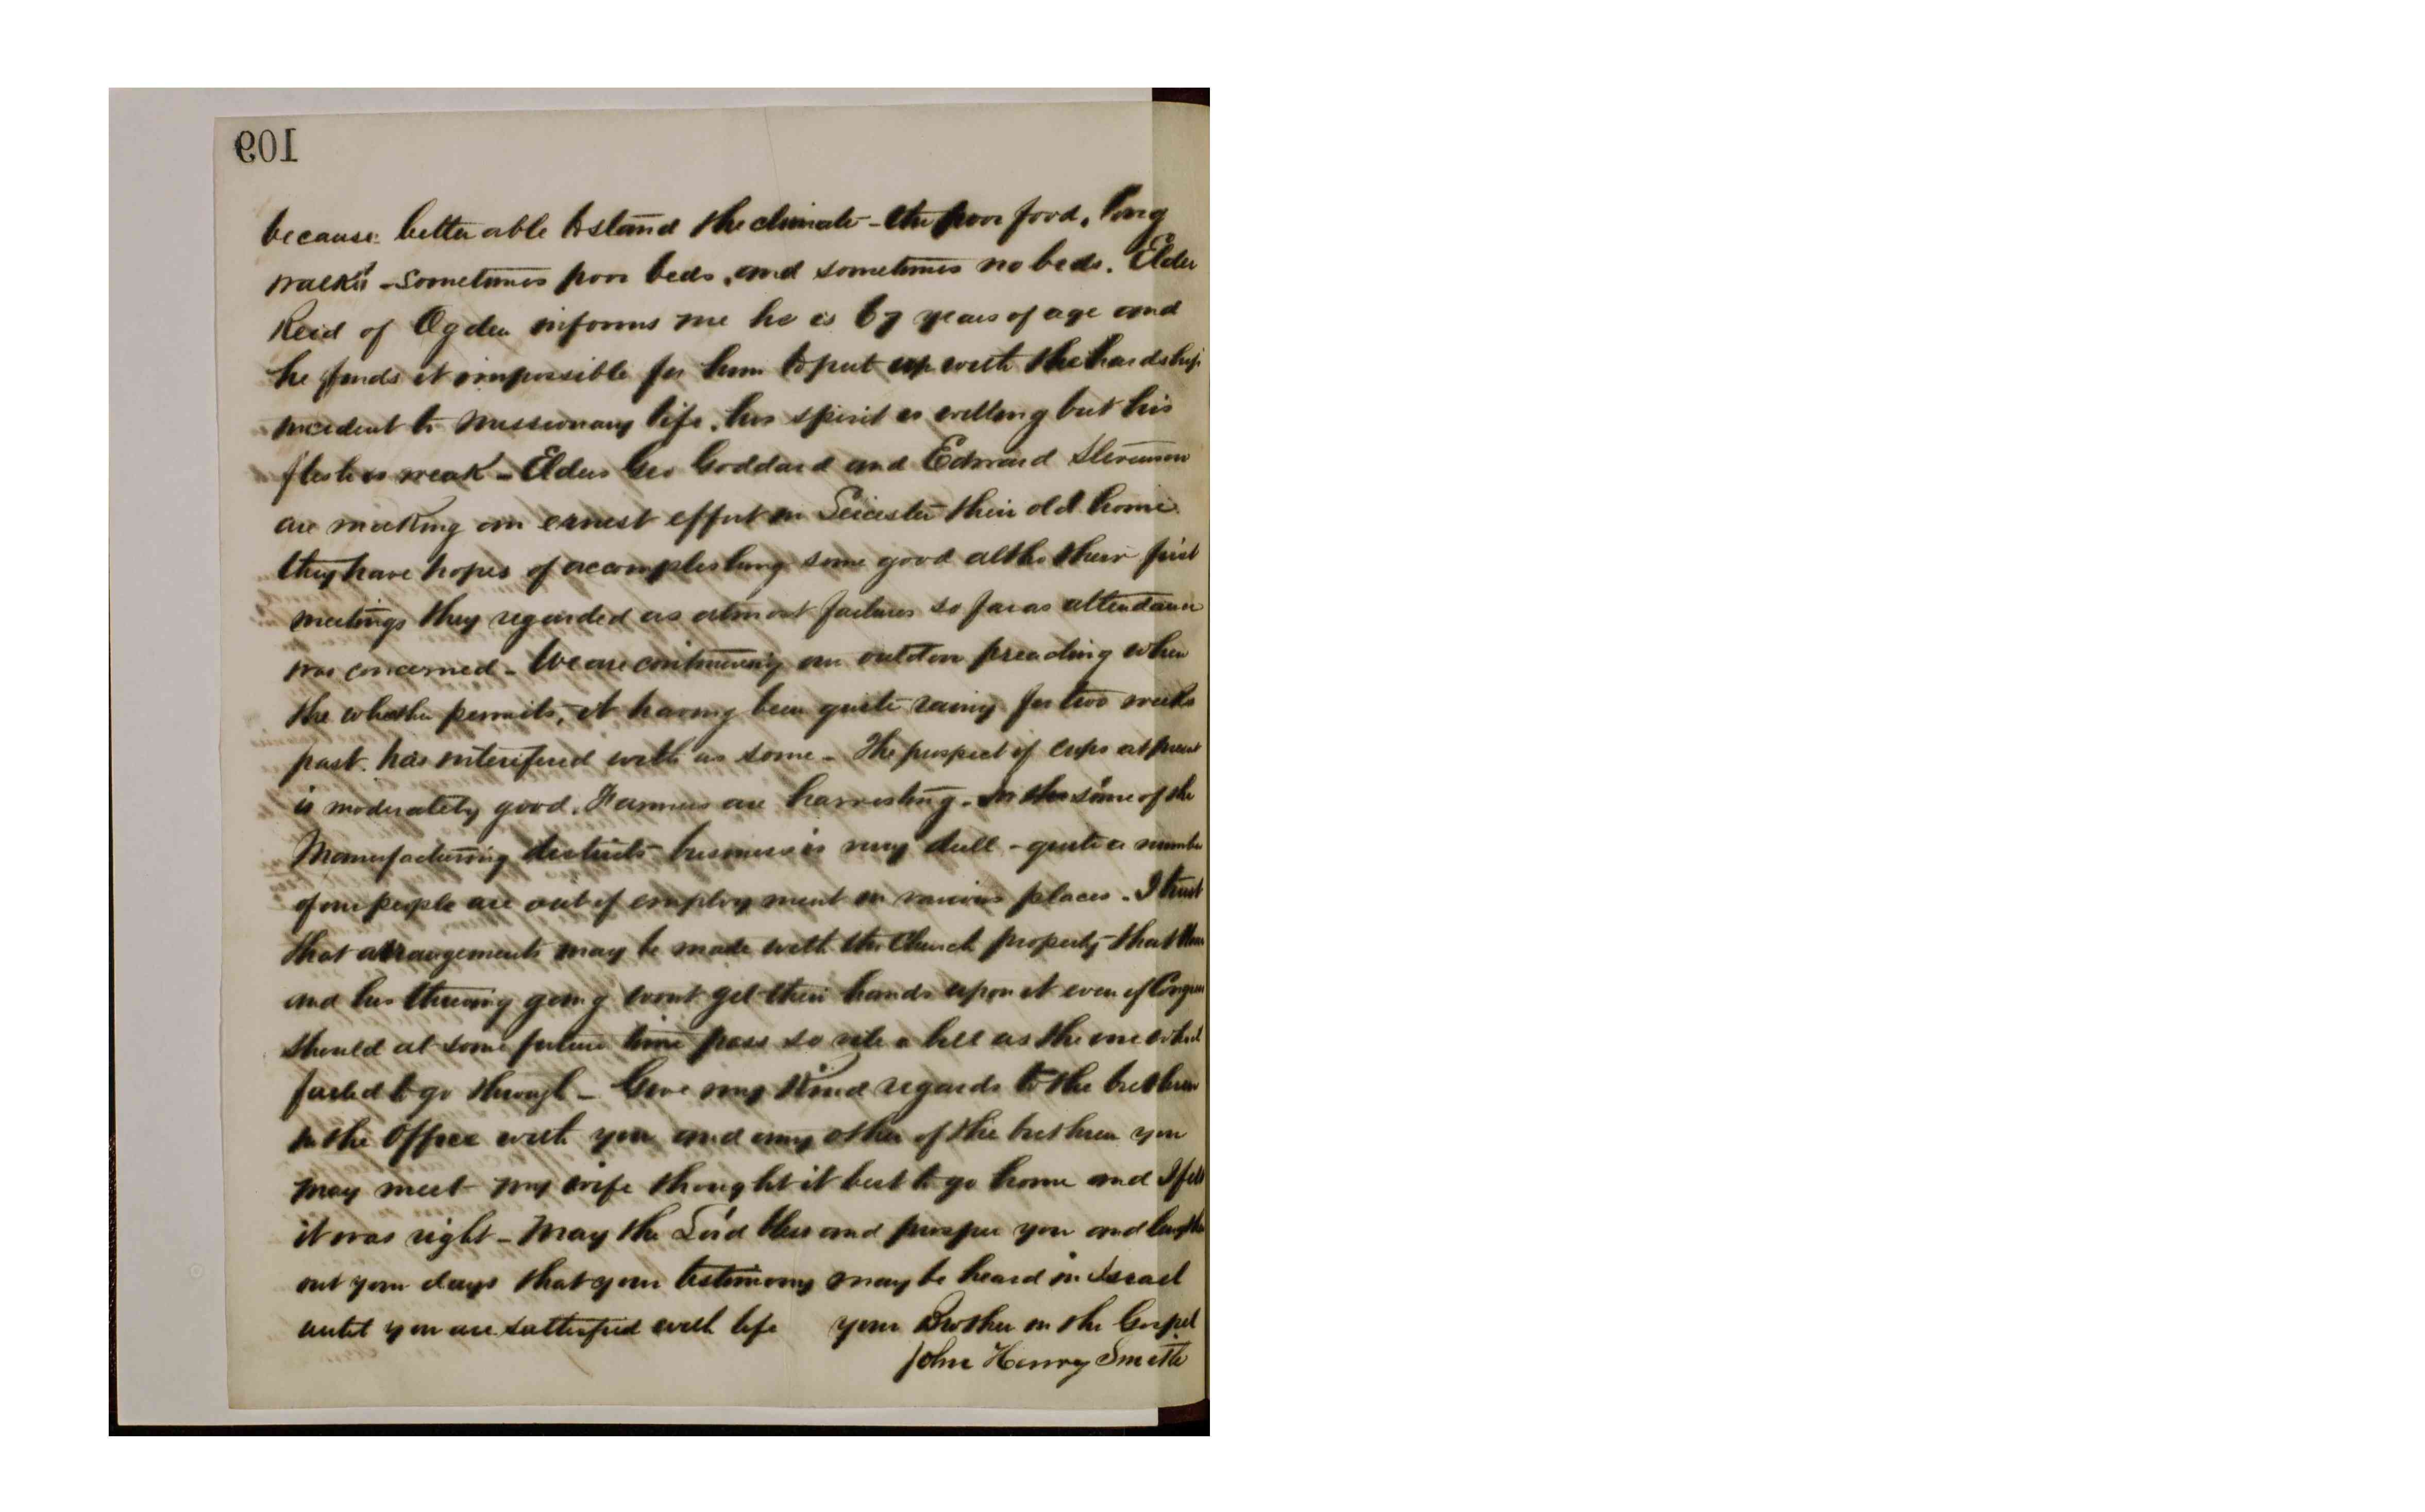 109
because better able to stand the climate - the poor food, long
walks - sometimes poor beds, and sometimes no beds. Elder
Reid of Ogden informs me he is 67 years of age and
he finds it impossible for him to put up with the hardships
incident to Missionary life, his spirit is willing but his
flesh is weak - Elders Geo Goddard and Edward Stevenson
are making an ernest effort in Leicester their old home
they have hopes of accomplishing some good altho their first
meetings they regarded as almost failures so far as attendance
was concerned - We are continueing our outdoor preaching when
the whether permits, it having been quite rainy for two weeks
past. has interifered with us some - The prospect of crops at present
is moderately good. Farmers are harvesting. In the some of the
Manufacturing districts business is very dull - quite a number
of our people are out of employment in various places. I trust
that arrangements may be made with the Church property that
and his thieving gang wont get their hands upon it even if Congress
should at some future time pass so vile a bill as the one which
failed to go through - Give my Kind regards to the brethren
in the Office with you and any other of the brethren you
may meet my wife thought it best to go home and I felt
it was right - May the Lord bless and prosper you and lengthen
out your days that your testimony may be heard in Israel
until you are satterfied with life your Brother in the Gospel
John Henry Smith